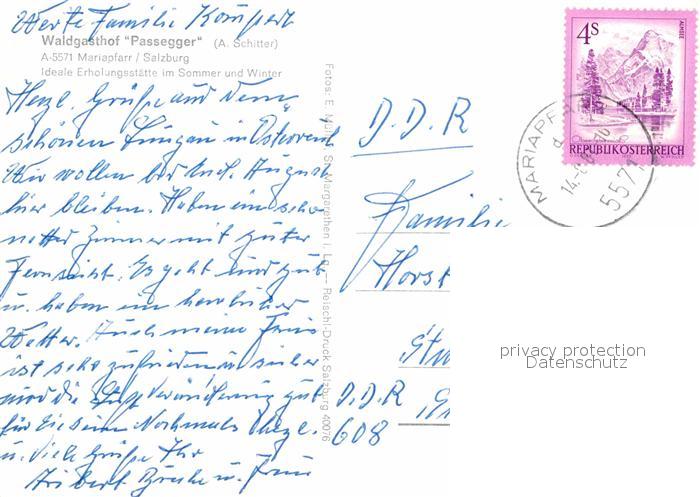 Werte Familie Kompert
Waldgasthof "Passegger" (A. Schitter)
A-5571 Mariapfarr / Salzburg
Ideale Erholungsstätte im Sommer und Winter
Herzl. Grüße aus dem
schönen Lungau in Österreich
Wir wollen bis August
hier bleiben. Haben ein sehr
nettes Zimmer mit guter
Fernsicht. Es geht uns gut
u. haben ein herrliches
Wetter. Auch meine Frau
ist sehr zufrieden u. sicher
wird die Luftveränderung gut
für sie sein. Nochmals Herzl.
u. viele Grüße Ihr
u. Frau
Fotos: E. St. Margarethen i. Lg. — Reischl-Druck Salzburg 40076
4S
ALMSEE
REPUBLIK ÖSTERREICH
MARIAPF
5571
D.D.R
Familie
Horst
D.D.R
608
privacy protection
Datenschutz